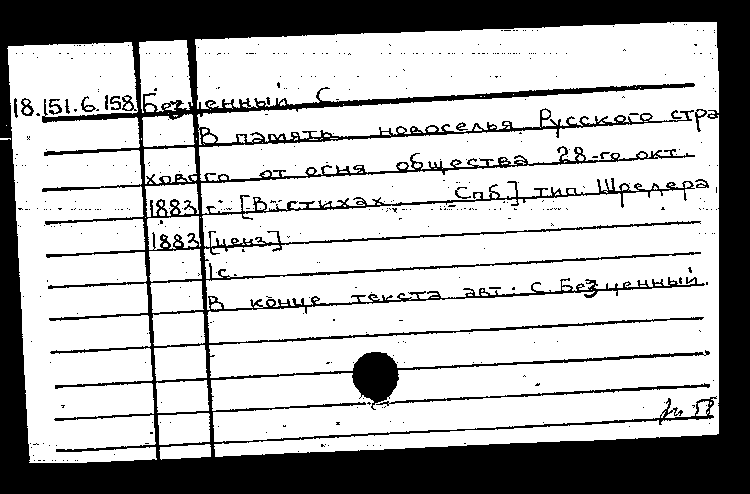 18.151.6.158 Безценный, С.
В память новоселья Русского стра
хового от огня общества 28-го окт.
1883 г. [В стихах. Спб.], тип. Шредера,
1883 [ценз.]
1 с.
В конце текста авт.: С. Безценный.
58